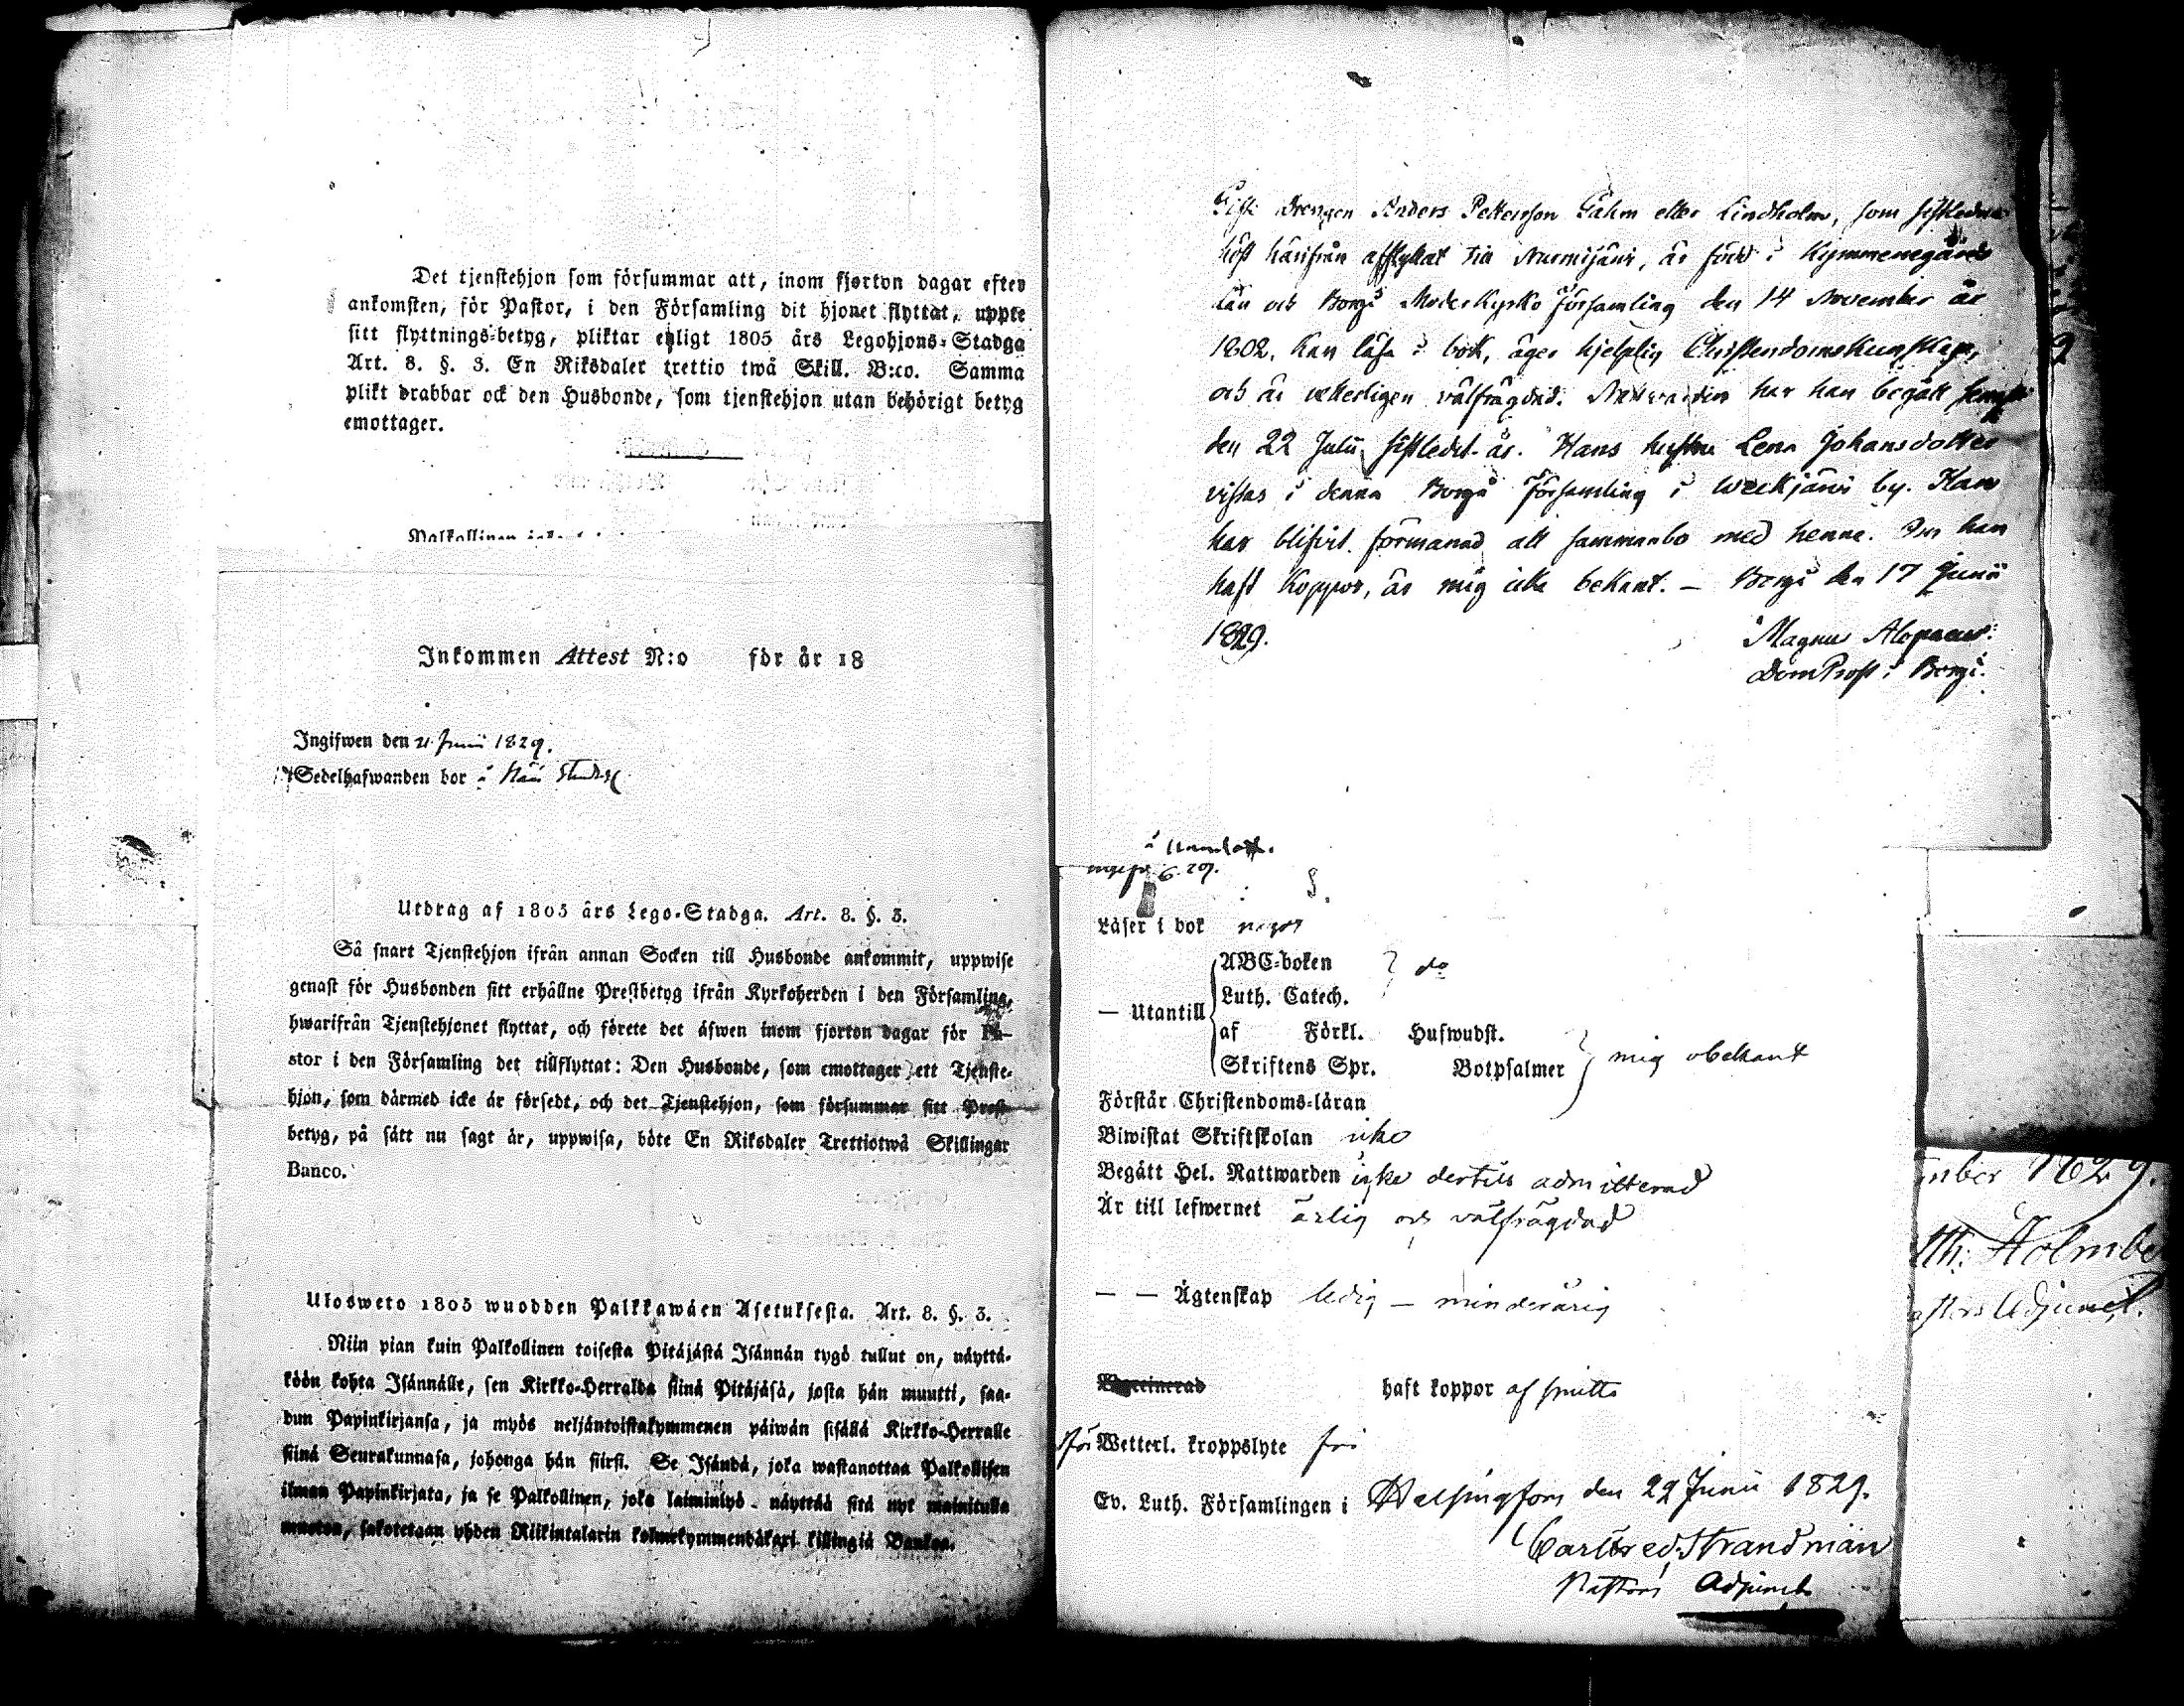 Det tjenstehjon som försummar att, inom fjorton dagar efter
ankomsten, för Pastor, i den Församling dit hjonet flyttat, uppte
sitt flyttnings-betyg, pliktar enligt 1805 års Legohjons-Stadga
Art. 8. §. 3. En Riksdaler trettio twå Skill. B:co. Samma
plikt drabbar ock den Husbonde, som tjenstehjon utan behörigt betyg
emottager.
Palkollinen
Inkommen Attest N:o för år 18
Ingifwen den 21 Junii 1829.
Sedelhafwanden bor å
Utdrag af 1805 års Lego-Stadga. Art. 8. §. 3.
Så snart Tjenstehjon ifrån annan Socken till Husbonde ankommit, uppwise
genast för Husbonden sitt erhållne Prestbetyg ifrån Kyrkoherden i den Församling,
hwarifrån Tjenstehjonet flyttat, och förete det äfwen inom fjorton dagar för Pa-
stor i den Församling det tillflyttat: Den Husbonde, som emottager ett Tjenste-
hjon, som därmed icke är försedt, och det Tjenstehjon, som försummar sitt Prest-
betyg, på sätt nu sagt är, uppwisa, böte En Riksdaler Trettiotwå Skillingar
Banco.
Ulosweto 1805 wuodden Palkkawäen Asetuksesta. Art. 8. §. 3.
Niin pian kuin Palkollinen toisesta Pitäjästä Isännän tygö tullut on, näyttä-
köön kohta Isännälle, sen Kirkko-Herralda siinä Pitäjäsä, josta hän muutti, saa-
dun Papinkirjansa, ja myös neljäntoistakymmenen päiwän sisällä Kirkko-Herralle
siinä Seurakunnasa, johonga hän siirsi. Se Isändä, joka wastanottaa Palkollisen
ilman Papinkirjata, ja se Palkollinen, joka laiminlyö näyttää sitä nyt mainitulla
muoton, sakotetaan yhden Riikintalarin kolmekymmendäkaxi killingiä Bankoa.
Gifte Drengen Anders Pettersson Fahm eller Lindholm, som sistledne
höst härifrån afflyttat till Nurmijärvi, är född i Kymmenegårds
län och Borgå Moderkyrko Församling den 14 November år
1802, kan läsa i bok, äger hjelplig Christendomskunskap,
och är vetterligen välfrägdad. Nattvarden har han begått senast
den 22 Julii sistledit år. Hans hustru Lena Johansdotter
vistas i denna Borgå Församling i Weckjärvi by. Han
har blifvit förmanad att sammanbo med henne. Om han
haft koppor, är mig icke bekant. – Borgå den 17 Junii
1829.
Magnus Alopaeus.
DomProst i Borgå.
Läser i bok något
ABC-boken } do
Luth. Catech.
— Utantill
af Förkl. Hufwudst.
Skriftens Spr. Botpsalmer } mig obekant
Förstår Christendoms-läran
Biwistat Skriftskolan icke
Begått Hel. Nattwarden icke dertill admitterad
Är till lefwernet ärlig och välfrägdad
— — Ägtenskap ledig – minderårig
Vaccinerad haft koppor af smitta
för Wetterl. kroppslyte fri
Ev. Luth. Församlingen i Helsingfors den 22 Junii 1829.
Carl Fred. Strandman
Pastors Adjunct
mber 1829.
th. Holmbe
astors Adjunct.